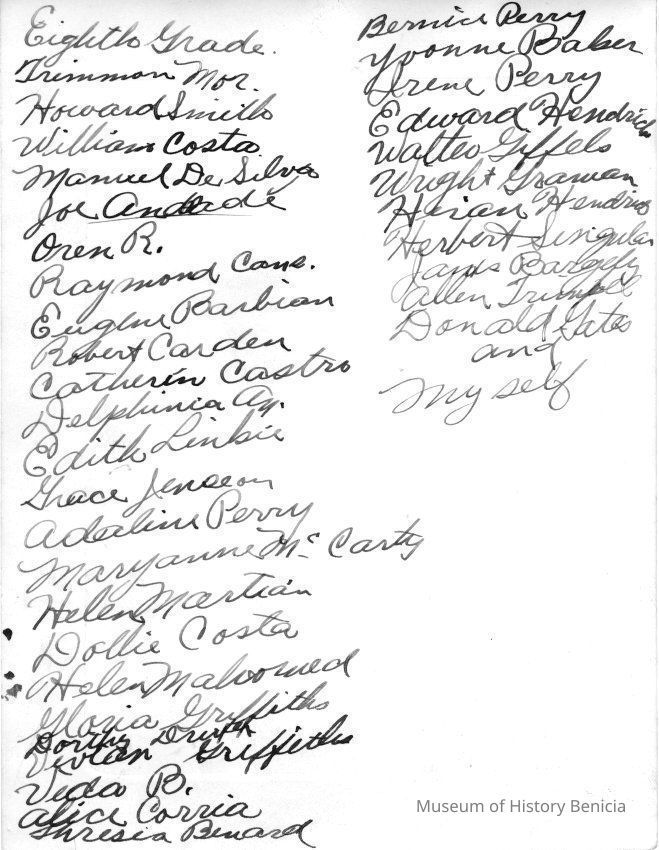 Eighth Grade.
Trimmon Mor.
Howard Smith
William Costa
Manuel De Silva
Joe Andrade
Oren R.
Raymond Cons.
Eugene Barbian
Robert Carden
Catherin Castro
Delphinia Ay.
Edith Linkie
Grace Jenseon
Adaline Perry
Maryanne Mc Carty
Helen Martian
Dollie Costa
Helen Mahoomed
Gloria Griffiths
Dorthy
Vivian Griffiths
Veda B.
Alice Corria
Thresia Benard
Bernice Perry
Yvonne Baker
Irene Perry
Edward Hendrick
Walter Giffels
Wright Graman
Hiran Hendrix
Herbert Singular
Allen
Donald Gates
and
My self
Museum of History Benicia